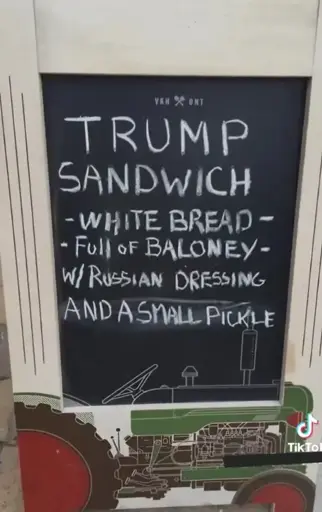 VAN ONT
TRUMP
SANDWICH
-WHITE BREAD-
-Full of BALONEY-
W/RUSSIAN DRESSING
AND A SMALL PICKLE
TikTo